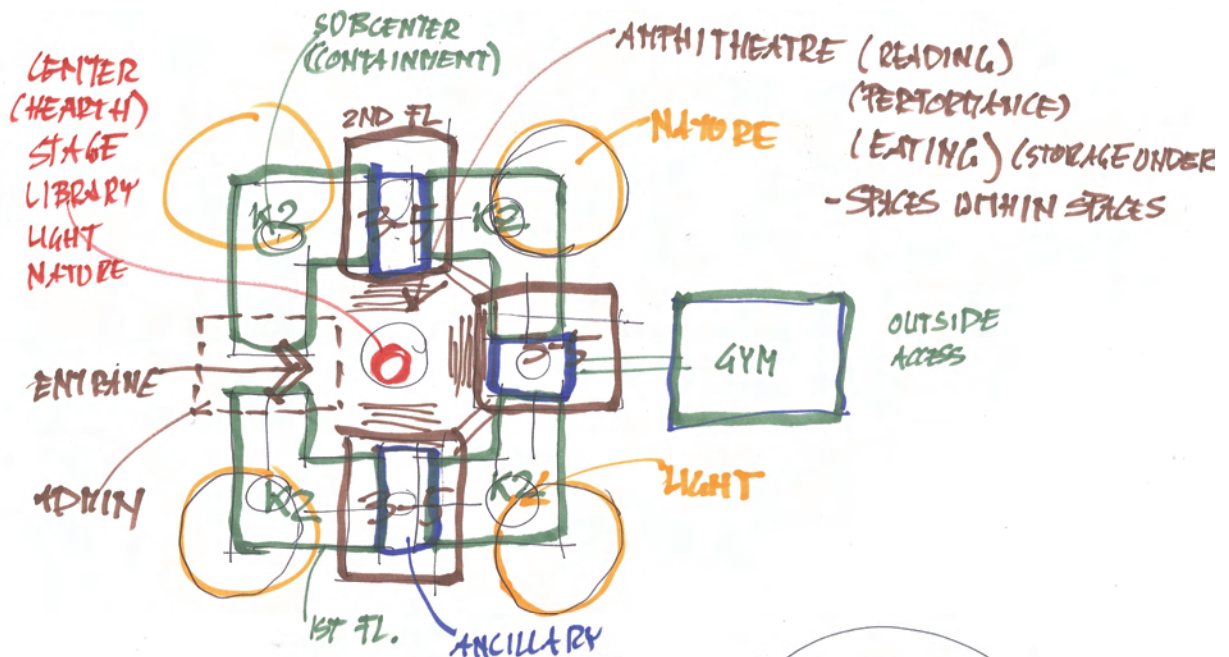 CENTER
(HEARTH)
STAGE
LIBRARY
LIGHT
NATURE
SUBCENTER
(CONTAINMENT)
2ND FL
AMPHITHEATRE (READING)
(PERFORMANCE)
(EATING) (STORAGE UNDER
- SPACES WITHIN SPACES
NATURE
K2
3-5
K2
ENTRANE
3-5
GYM
OUTSIDE
ACCESS
ADMIN
K2
3-5
K2
LIGHT
1ST FL.
ANCILLARY